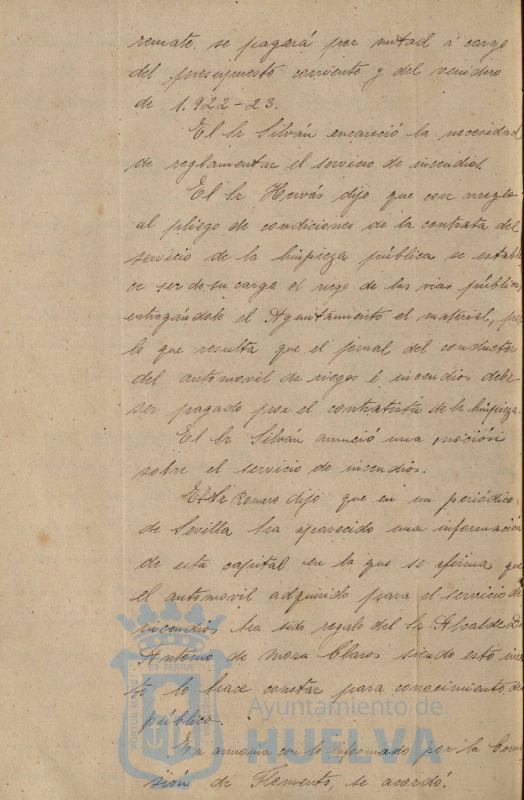 remate, se pagará por mitad á cargo
del presupuesto corriente y del venidero
de 1.922-23.
El Sr Silván encareció la necesidad
de reglamentar el servicio de incendios.
El Sr Hervás dijo que con arreglo
al pliego de condiciones de la contrata del
servicio de la limpieza pública se estable
ce ser de su cargo el riego de las vías públicas
entregándole el Ayuntamiento el material, por
lo que resulta que el jornal del conductor
del automovil de riegos é incendios debe
ser pagado por el contratista de la limpieza.
El Sr Silván anunció una moción
sobre el servicio de incendios.
El Sr Romero dijo que en un periódico
de Sevilla ha aparecido una información
de esta capital en la que se afirma que
el automovil adquirido para el servicio de
incendios ha sido regalo del Sr Alcalde Dn
Antonio de Mora Claros siendo esto incier
to lo hace constar para conocimiento del
público.
En armonia con lo informado por la Comi
sión de Fomento, se acordó:
PORTUS MARIS
ET TERRÆ
CUSTODIA
Ayuntamiento de
HUELVA